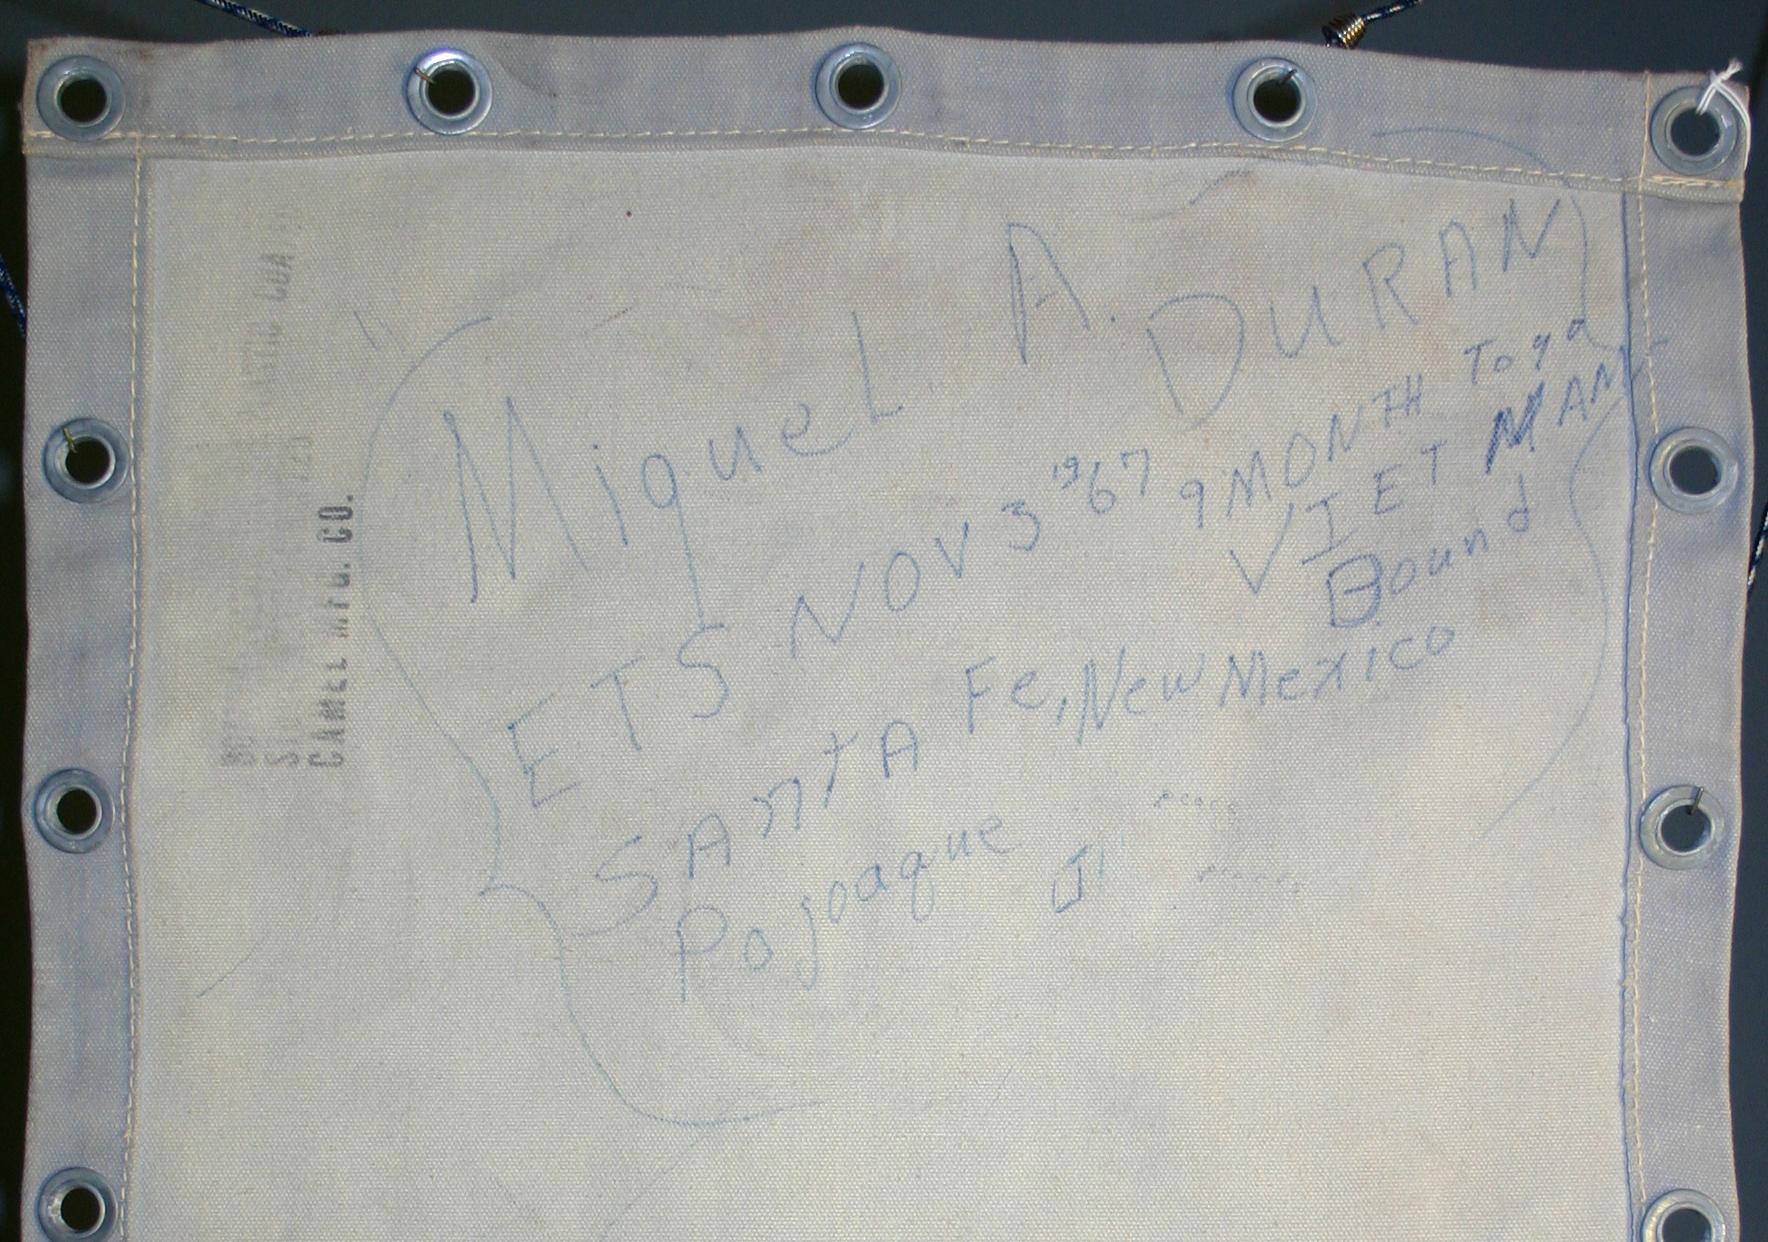 Miguel A. DURAN
ETS NOV 3 1967 9 MONTH To go
VIET NAM
Bound
SAntA Fe, New Mexico
Pojoaque
CAMEL MFG. CO.